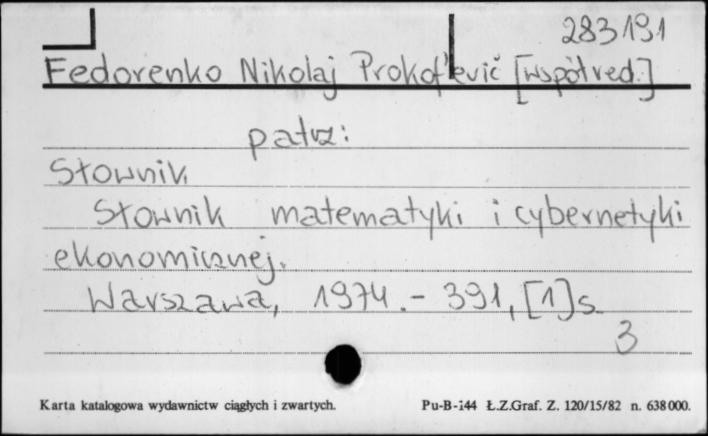 283191
Fedorenko Nikolaj Prokof'evič [współred.]
patrz:
Słownik
Słownik matematyki i cybernetyki
ekonomicznej.
Warszawa, 1974. - 391, [1] s.
3
Karta katalogowa wydawnictw ciągłych i zwartych. Pu-B-144 Ł.Z.Graf. Z. 120/15/82 n. 638000.